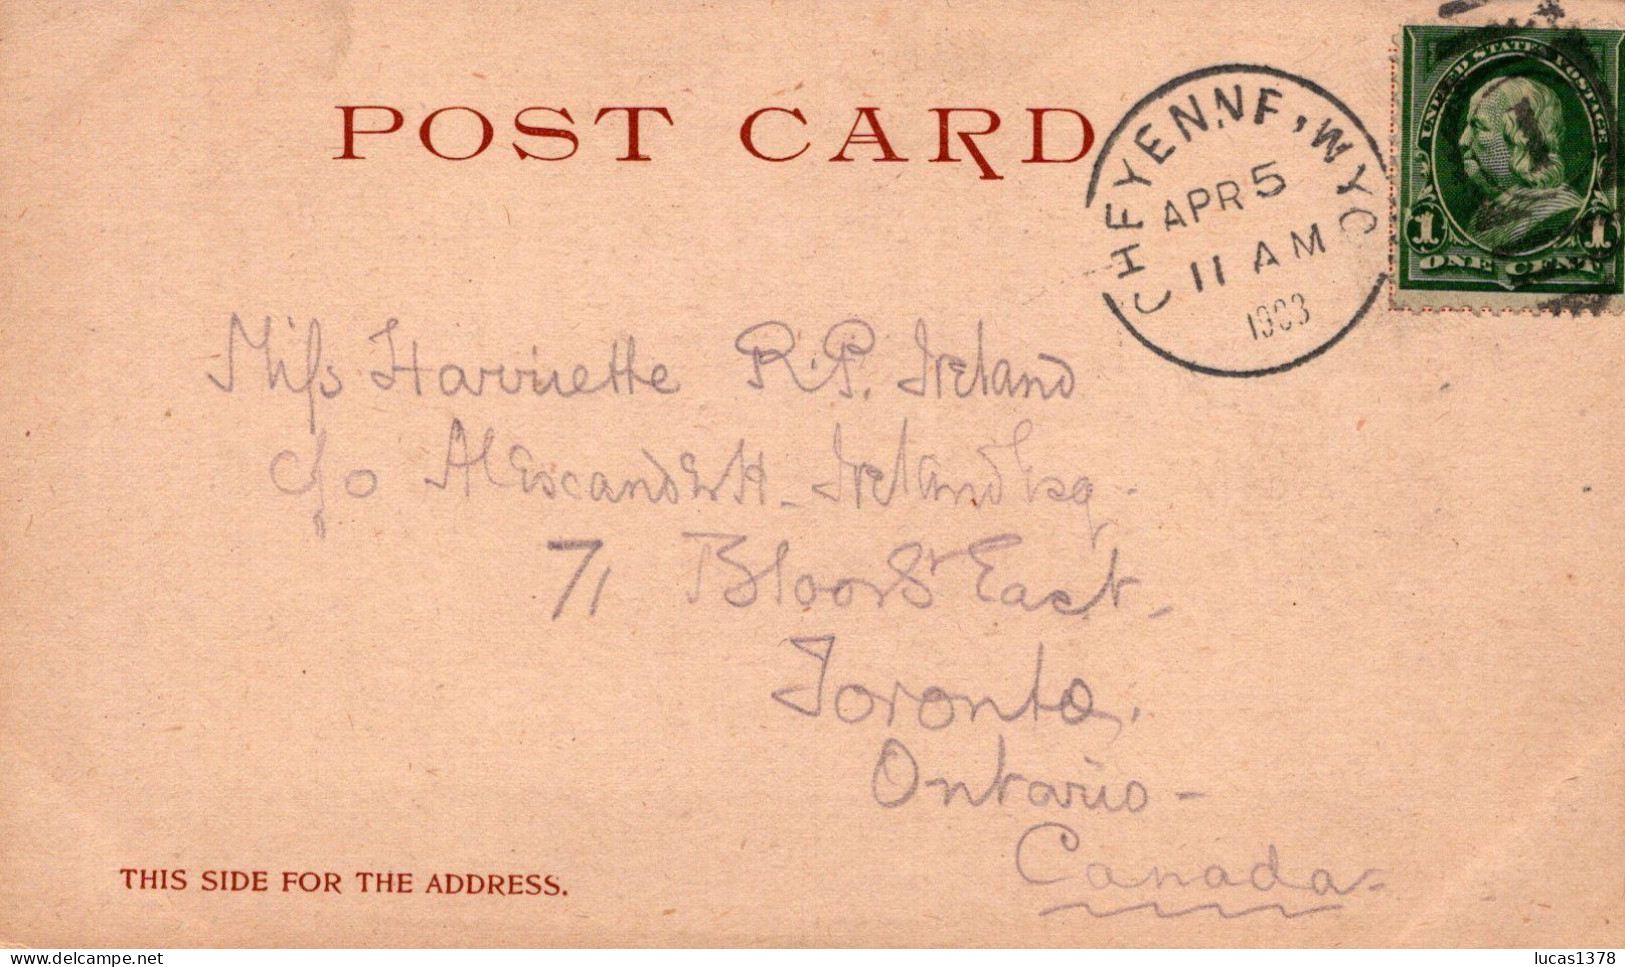 POST CARD
CHEYENNE, WYO
APR 5
11 AM
1903
UNITED STATES POSTAGE
1 1
ONE CENT
1
Miss Harriette R. P. Ireland
c/o Alexander H. Ireland Esq.
71 Bloor St East.
Toronto,
Ontario-
Canada-
THIS SIDE FOR THE ADDRESS.
delcampe.net
lucas1378